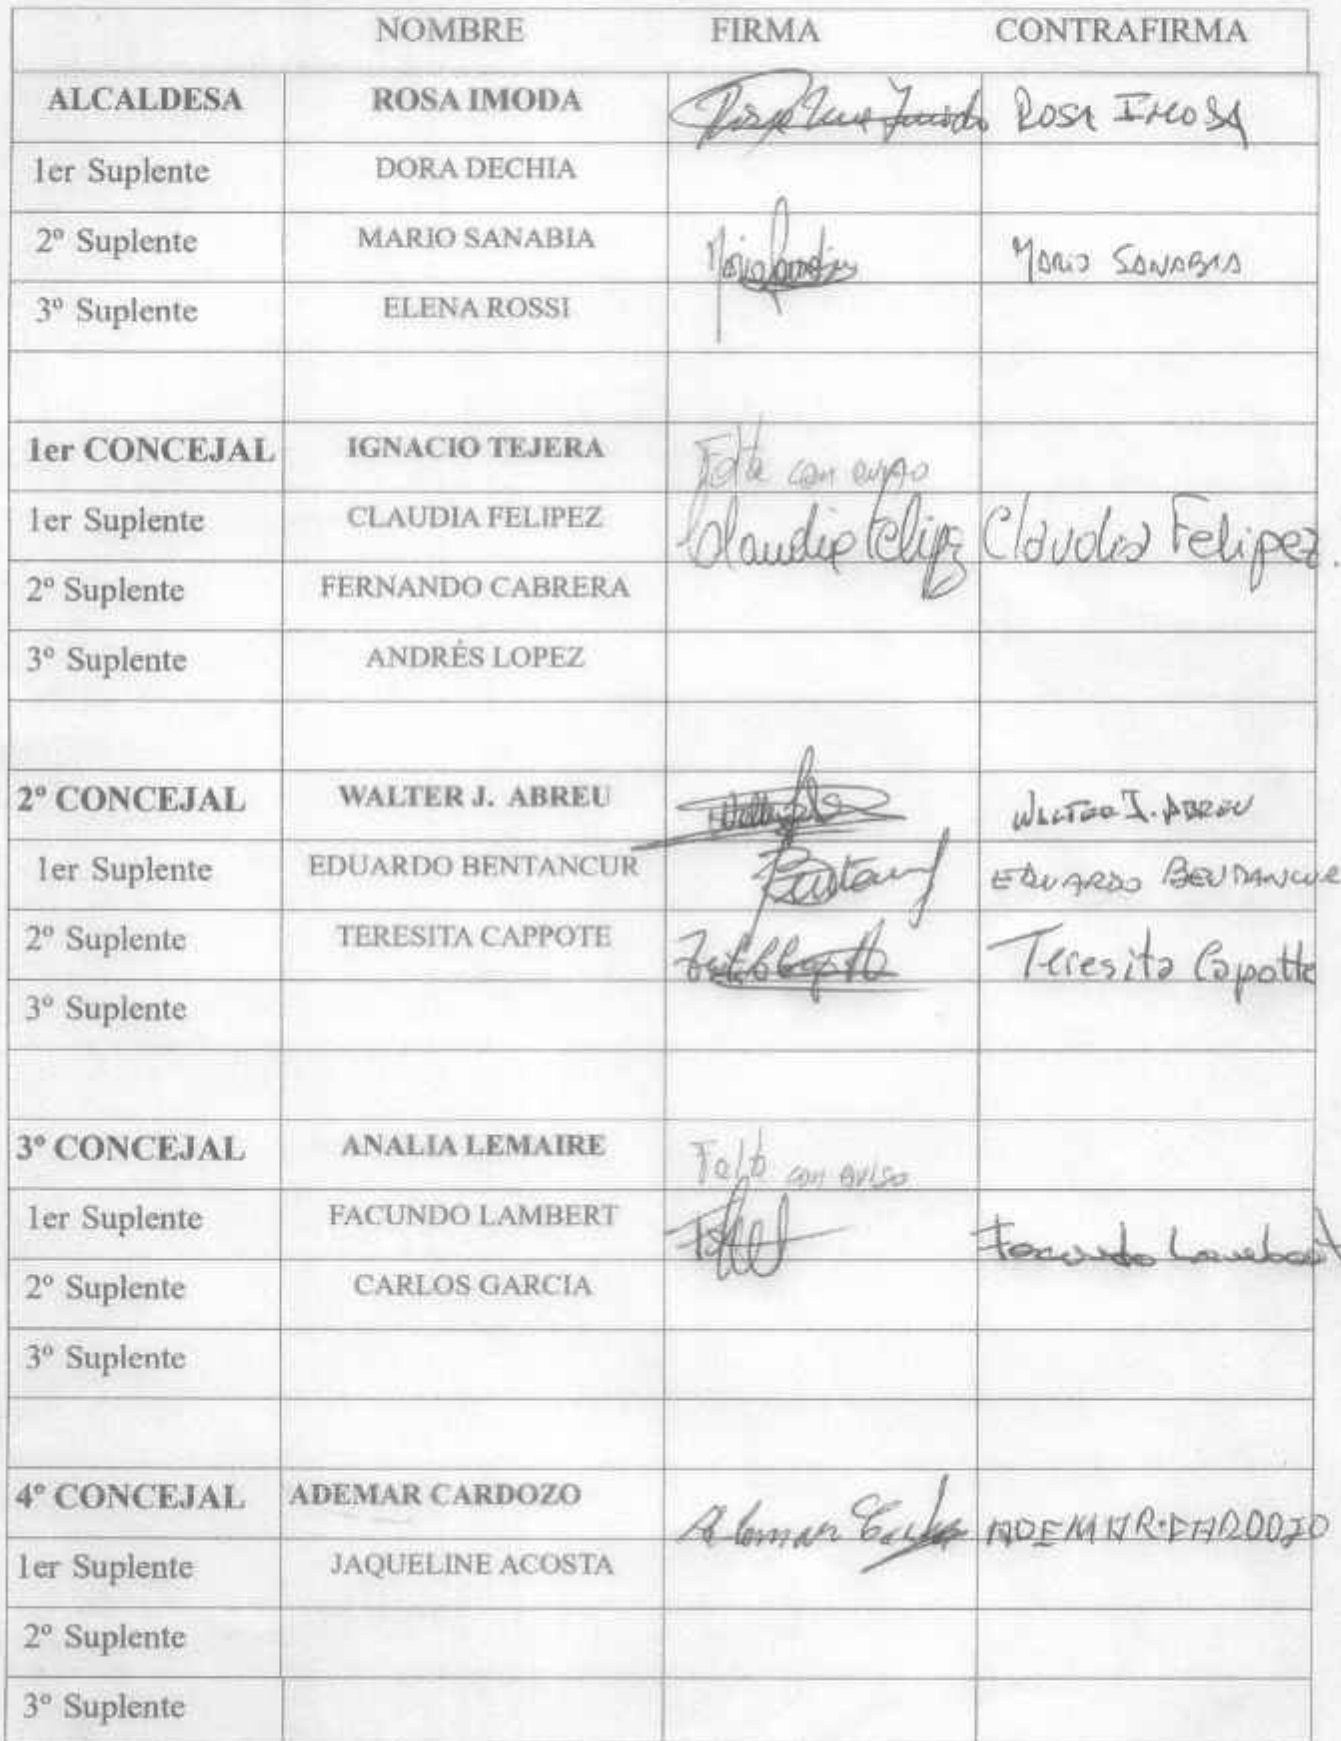 NOMBRE FIRMA CONTRAFIRMA
ALCALDESA ROSA IMODA Rosa Imoda ROSA IMODA
1er Suplente DORA DECHIA
2º Suplente MARIO SANABIA MARIO SANABIA
3º Suplente ELENA ROSSI
1er CONCEJAL IGNACIO TEJERA Falta con aviso
1er Suplente CLAUDIA FELIPEZ Claudia Felipez Claudia Felipez.
2º Suplente FERNANDO CABRERA
3º Suplente ANDRÉS LOPEZ
2º CONCEJAL WALTER J. ABREU WALTER J. ABREU
1er Suplente EDUARDO BENTANCUR EDUARDO BENTANCUR
2º Suplente TERESITA CAPPOTE Teresita Capotte
3º Suplente
3º CONCEJAL ANALIA LEMAIRE Falta con aviso
1er Suplente FACUNDO LAMBERT Facundo Lambert
2º Suplente CARLOS GARCIA
3º Suplente
4º CONCEJAL ADEMAR CARDOZO Ademar ADEMAR CARDOZO
1er Suplente JAQUELINE ACOSTA
2º Suplente
3º Suplente